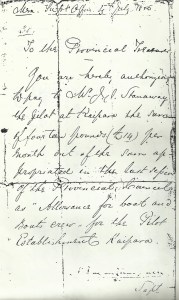 To the Provincial Treasurer
You are hereby authorized
to pay to Mr J. J. Stanaway
the Pilot at Kaipara the sum
of fourteen pounds (£14) per
month out of the sum ap-
propriated in the last session
of the Provincial Council
as "Allowance for boat and
boats crew - for the Pilot
Establishment Kaipara.
Supt